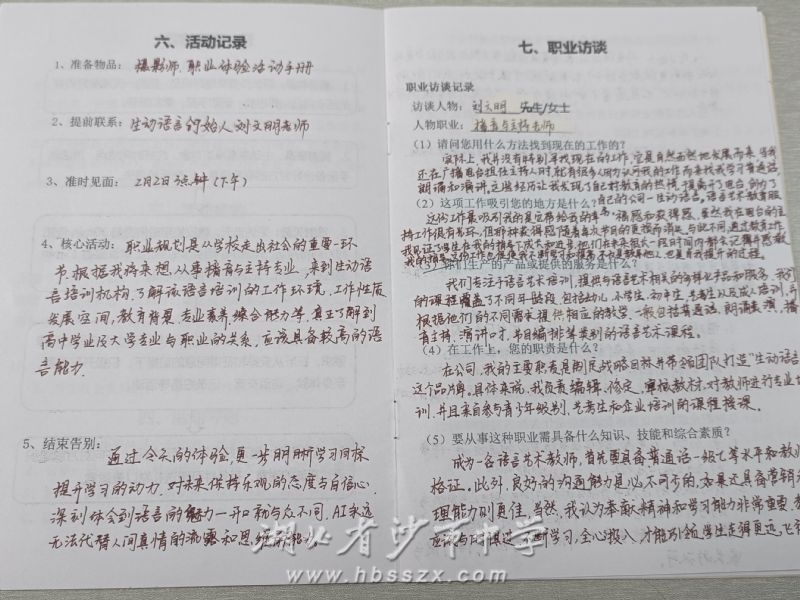 六、活动记录
1、准备物品： 摄影师、职业体验活动手册
2、提前联系：生动语言创始人刘文明老师
3、准时见面： 2月2日3点钟（下午）
4、核心活动： 职业规划是从学校走出社会的重要一环
节，根据我将来想从事播音与主持专业，来到生动语
言培训机构，了解该语言培训的工作环境，工作性质
发展空间，教育背景，专业素养，综合能力等，真正了解到
高中学业及大学专业与职业的关系，应该具备较高的语
言能力。
5、结束告别： 通过今天的体验，更一步明晰学习目标
提升学习的动力，对未来保持乐观的态度与自信心
深刻体会到语言的魅力一开口就与众不同，AI永远
无法代替人间真情的流露和思维
七、职业访谈
职业访谈记录
访谈人物： 刘文明 先生/女士
人物职业： 播音与主持老师
（1）请问您用什么方法找到现在的工作的？
实际上，我并没有特别寻找现在的工作，它是自然而然地发展而来，当我
还在广播电台担任主持人时，就有很多人因为认可我的工作而来找我学习普通话、
朗诵和演讲，这些经历让我发现了自己对教育的热情，
（2）这项工作吸引您的地方是什么？ 自己的公司一生动语言，语言艺术教育服
这份工作最吸引我的是它带给我的幸福感和获得感，虽然我在电台的主
持工作很有光环，但那种获得感随着每次节目的更换而消失，与此不同，通过教育工作
我见证了学生在我的指导下成大和进步，他们在未来很大一段时间内都会记得并感激
我的指导，这份工作也促使我不断学习和提高，
（3）你们生产的产品或提供的服务是什么？
我们专注于语言艺术培训，提供与语言艺术相关的各样业产品和服务，我们
的课程覆盖了不同年龄段，包括幼儿、小学生、初中生、艺考生以及成人培训，并
根据他们的不同需求提供相应的教学，一般包括普通话、朗诵表演、播
音主持、演讲口才、节目编排等类别的语言艺术课程。
（4）在工作上，您的职责是什么？
在公司，我的主要职责是制定战略目标并带领团队打造“生动语言
这个品牌。具体来说，我负责编辑、修定、审核教材，对教师进行专业培
训，并且亲自参与青少年级别、艺考生和企业培训的课程授课。
（5）要从事这种职业需具备什么知识、技能和综合素质？
成为一名语言艺术教师，首先要具备普通话一级乙等水平和教师
格证。此外，良好的沟通能力是必不可少的，如果还具备营销
理能力则更佳，当然，我认为奉献精神和学习能力非常重要，
不断学习，全心投入，才能引领学生走得更远，
湖北省沙市中学
www.hbsszx.com